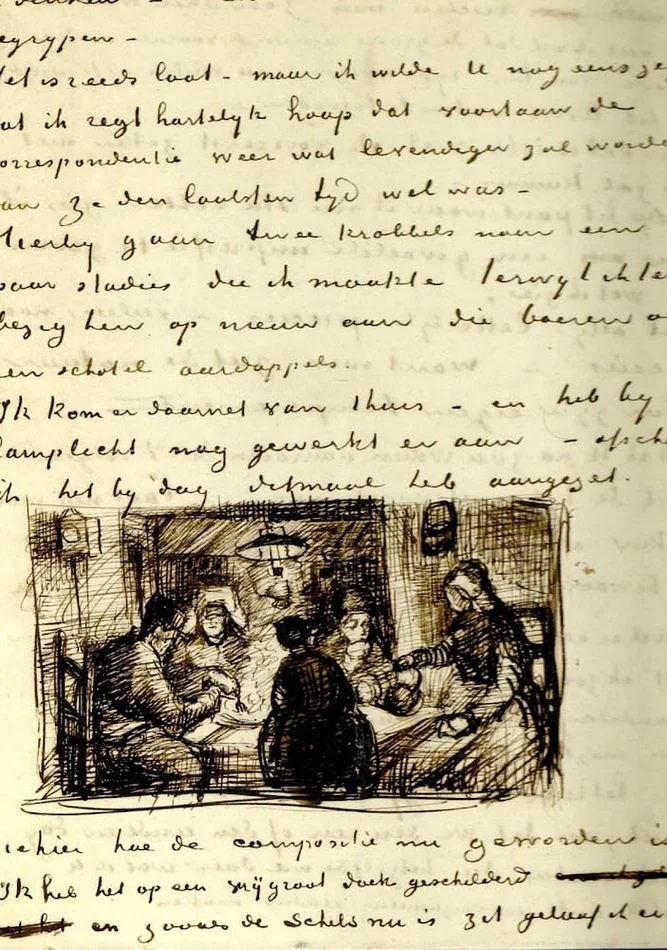 egrypen -
et is reeds laat - maar ik wilde U nog eens ze
at ik regt hartelyk hoop dat voortaan de
orrespondentie weer wat levendiger zal worde
an ze den laatsten tyd wel was -
Hierby gaan twee krabbels naar een
paar studies die ik maakte terwyl ik te
bezig ben op nieuw aan die boeren o
een schotel aardappels.
Ik kom er daarnet van thuis - en heb by
lamplicht nog gewerkt er aan - ofsch
ik het by dag ditmaal heb aangezet.
iehier hoe de compositie nu geworden is
Ik heb het op een vrij groot doek geschilderd
en zooals de schets nu is zit geloof ik er